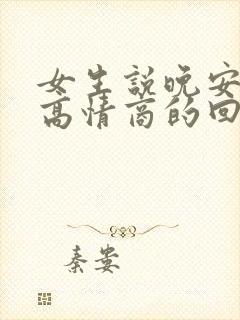 女生説晚安
高情商的回
秦嶴